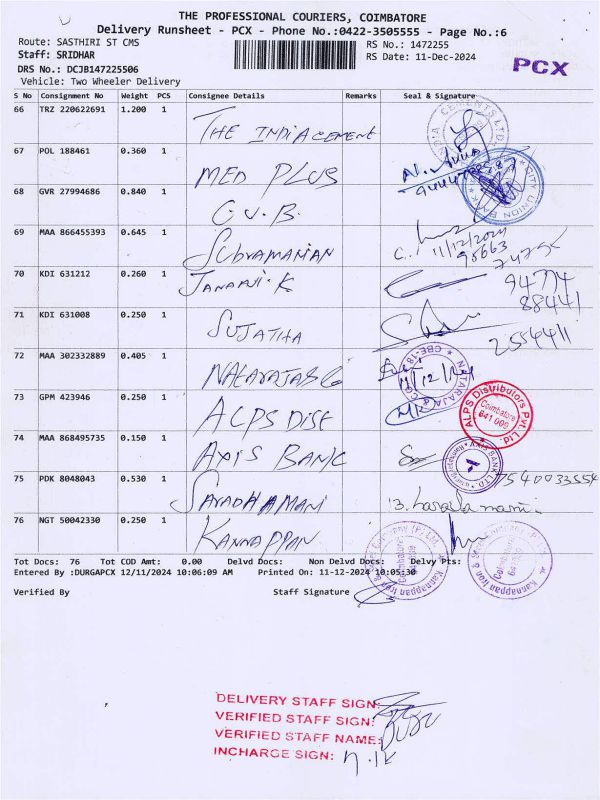 THE PROFESSIONAL COURIERS, COIMBATORE
Delivery Runsheet - PCX - Phone No.:0422-3505555 - Page No.:6
Route: SASTHIRI ST CMS
RS No.: 1472255
Staff: SRIDHAR
RS Date: 11-Dec-2024
PCX
DRS No.: DCJB147225506
Vehicle: Two Wheeler Delivery
S No Consignment No Weight PCS Consignee Details Remarks Seal & Signature
66 TRZ 220622691 1.200 1
THE INDIA CEMENT
67 POL 188461 0.360 1
MED PLUS
68 GVR 27994686 0.840 1
C.U.B.
CITY UNION BANK
69 MAA 866455393 0.645 1
SUBRAMANIAN
11/12/2024
70 KDI 631212 0.260 1
JANAKI.K
94774
88441
71 KDI 631008 0.250 1
SUJATHA
2554411
72 MAA 302332889 0.405 1
NATARAJAS
NATARAJA & CO
CBE-18
11/12/24
73 GPM 423946 0.250 1
ALPS DIST
ALPS Distributors Pvt. Ltd
Coimbatore
641 009
74 MAA 868495735 0.150 1
AXIS BANK
AXIS BANK LTD.
75 PDK 8048043 0.530 1
SARADHAMANI
7540033554
76 NGT 50042330 0.250 1
KANNAPPAN
Kannappan Iron & Steel Company (P) Ltd.
Coimbatore
641 009
Kannappan Iron & Steel Company (P) Ltd.
Coimbatore
641 009
Tot Docs: 76 Tot COD Amt: 0.00 Delvd Docs: Non Delvd Docs: Delvy Pts:
Entered By :DURGAPCX 12/11/2024 10:06:09 AM Printed On: 11-12-2024 10:05:30
Verified By Staff Signature
DELIVERY STAFF SIGN:
VERIFIED STAFF SIGN:
VERIFIED STAFF NAME:
INCHARGE SIGN: